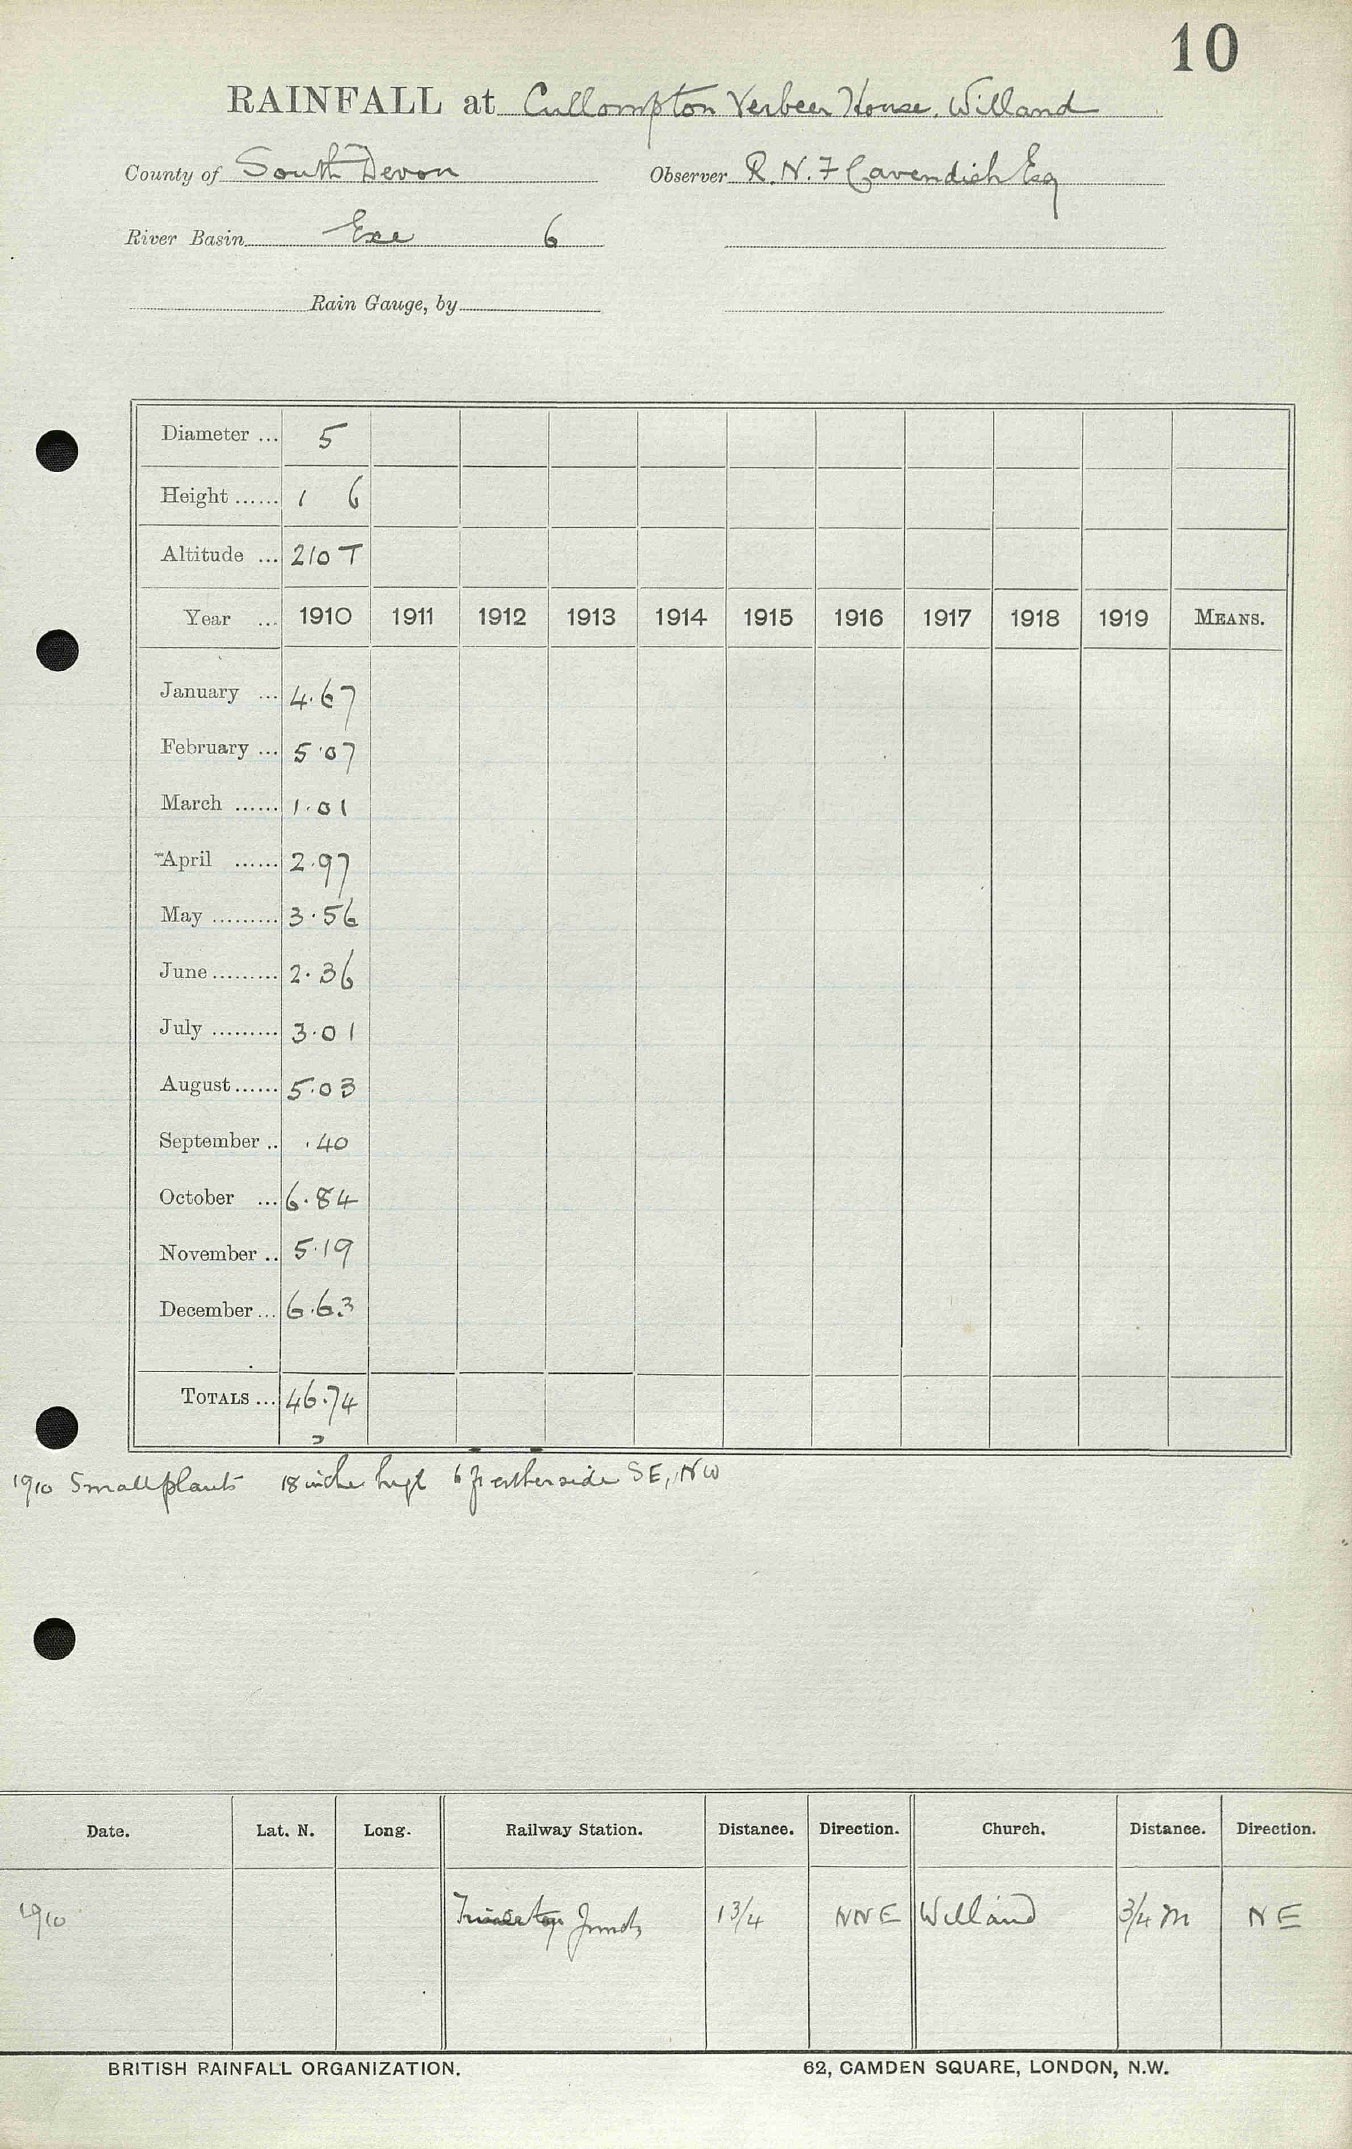 10
RAINFALL at Cullompton Verbeer House. Willand
County of South Devon Observer R. N. F Cavendish Esq
River Basin Exe 6
Rain Gauge, by
Diameter ... 5
Height ...... 1 6
Altitude ... 210 T
Year ... 1910 1911 1912 1913 1914 1915 1916 1917 1918 1919 MEANS.
January ... 4.67
February ... 5.07
March ...... 1.01
April ...... 2.97
May ......... 3.56
June ......... 2.36
July ......... 3.01
August ...... 5.03
September .. .40
October ... 6.84
November .. 5.19
December ... 6.63
TOTALS ... 46.74
1910 Small plants 18 inche high 6 ft either side SE, NW
Date. Lat. N. Long. Railway Station. Distance. Direction. Church. Distance. Direction.
1910 Junct 1 3/4 NNE Willand 3/4 m NE
BRITISH RAINFALL ORGANIZATION. 62, CAMDEN SQUARE, LONDON, N.W.